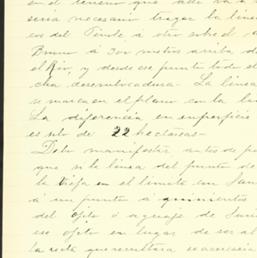 en el terreno que
seria necesario trazar la linea
os del Tinte á otro sobre el
Bravo á 300 metros arriba de
el Rio, y desde ese punto todo el
cha desembocadura. La linea
se marca en el plano con la
La diferencia en superficie
es solo de 22 hectareas—
Debo manifestar antes de
que si la linea del punto de
la en el limite con San
á un punto á quinientos
del Ojito ó aguaje de
ese ojito en lugar de ser al
la recta que resultara